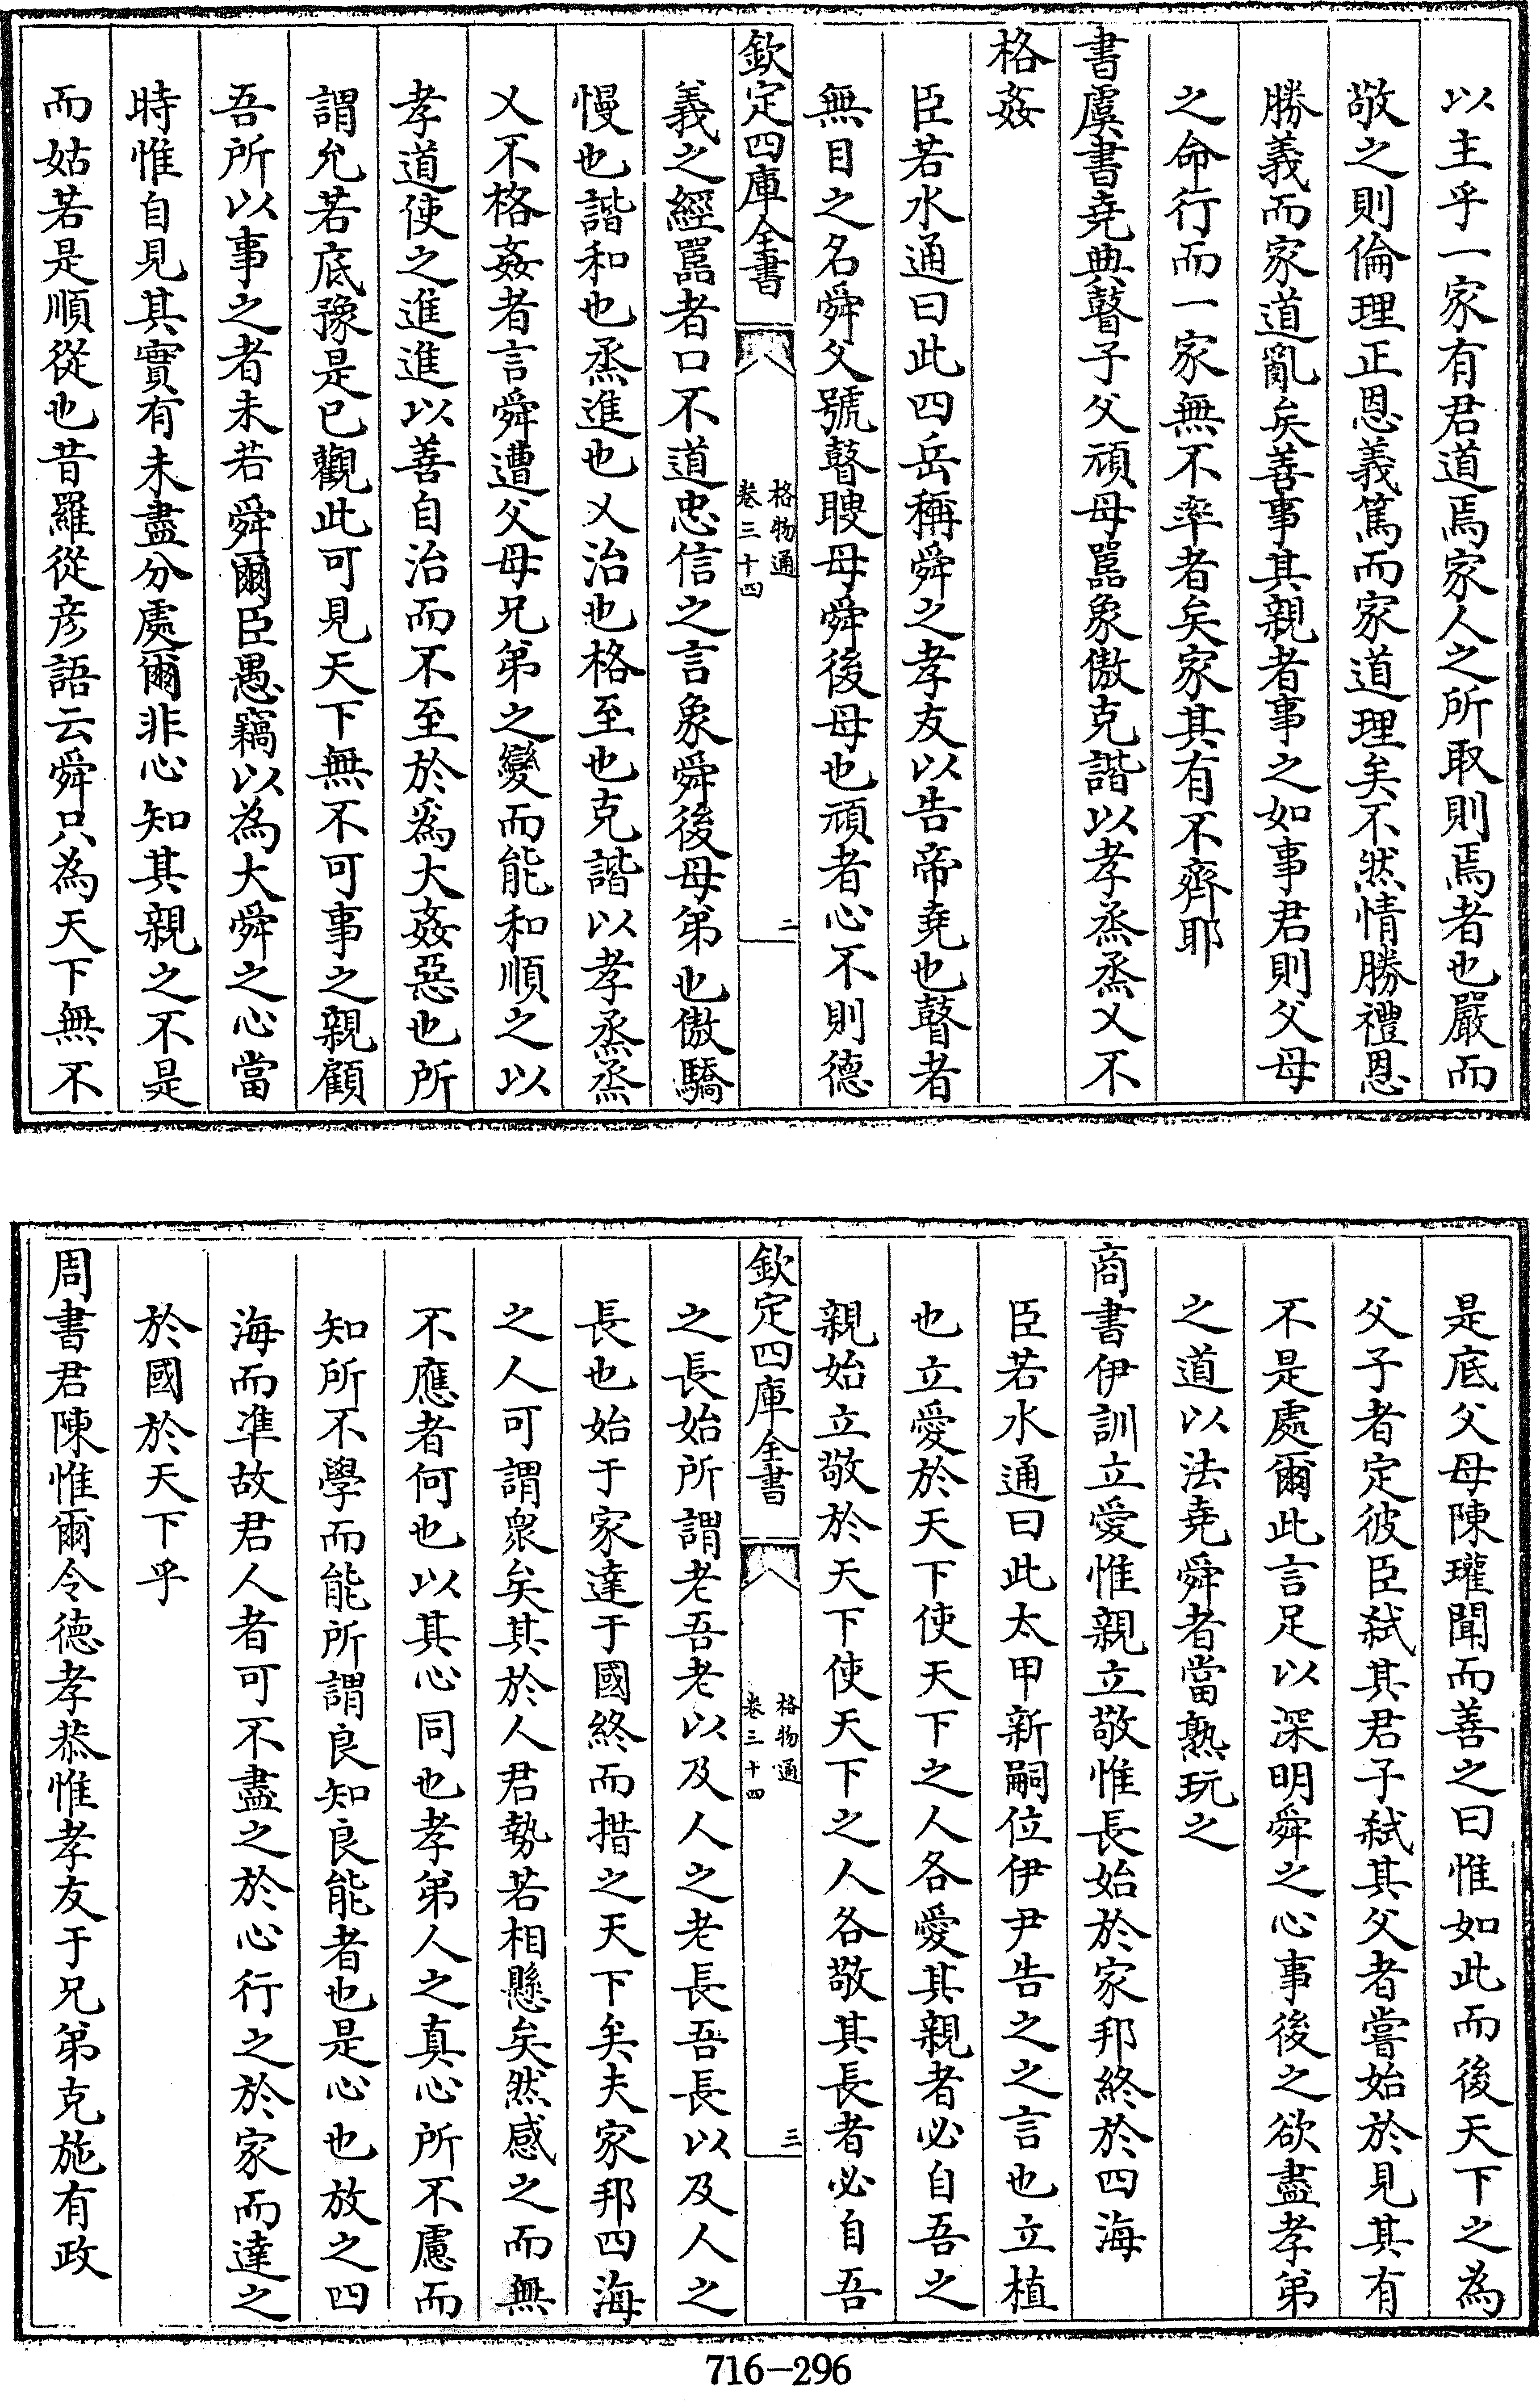 以主乎一家有君道焉家人之所取則焉者也嚴而
敬之則倫理正恩義篤而家道理矣不然情勝禮恩
勝義而家道亂矣善事其親者事之如事君則父母
之命行而一家無不率者矣家其有不齊耶
書虞書堯典瞽子父頑母嚚象傲克諧以孝烝烝乂不
格姦
臣若水通曰此四岳稱舜之孝友以告帝堯也瞽者
無目之名舜父號瞽瞍母舜後母也頑者心不則德
欽定四庫全書
格物通
卷三十四
二
義之經嚚者口不道忠信之言象舜後母弟也傲驕
慢也諧和也烝進也乂治也格至也克諧以孝烝烝
乂不格姦者言舜遭父母兄弟之變而能和順之以
孝道使之進進以善自治而不至於為大姦惡也所
謂允若底豫是已觀此可見天下無不可事之親顧
吾所以事之者未若舜爾臣愚竊以為大舜之心當
時惟自見其實有未盡分處爾非心知其親之不是
而姑若是順從也昔羅從彥語云舜只為天下無不
是底父母陳瓘聞而善之曰惟如此而後天下之為
父子者定彼臣弒其君子弒其父者嘗始於見其有
不是處爾此言足以深明舜之心事後之欲盡孝弟
之道以法堯舜者當熟玩之
商書伊訓立愛惟親立敬惟長始於家邦終於四海
臣若水通曰此太甲新嗣位伊尹告之之言也立植
也立愛於天下使天下之人各愛其親者必自吾之
親始立敬於天下使天下之人各敬其長者必自吾
欽定四庫全書
格物通
卷三十四
三
之長始所謂老吾老以及人之老長吾長以及人之
長也始于家達于國終而措之天下矣夫家邦四海
之人可謂衆矣其於人君勢若相懸矣然感之而無
不應者何也以其心同也孝弟人之真心所不慮而
知所不學而能所謂良知良能者也是心也放之四
海而準故君人者可不盡之於心行之於家而達之
於國於天下乎
周書君陳惟爾令德孝恭惟孝友于兄弟克施有政
716-296